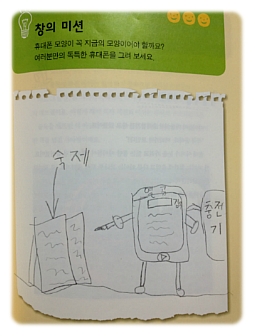 창의 미션
휴대폰 모양이 꼭 지금의 모양이어야 할까요?
여러분만의 똑똑한 휴대폰을 그려 보세요.
숙제
충전
기